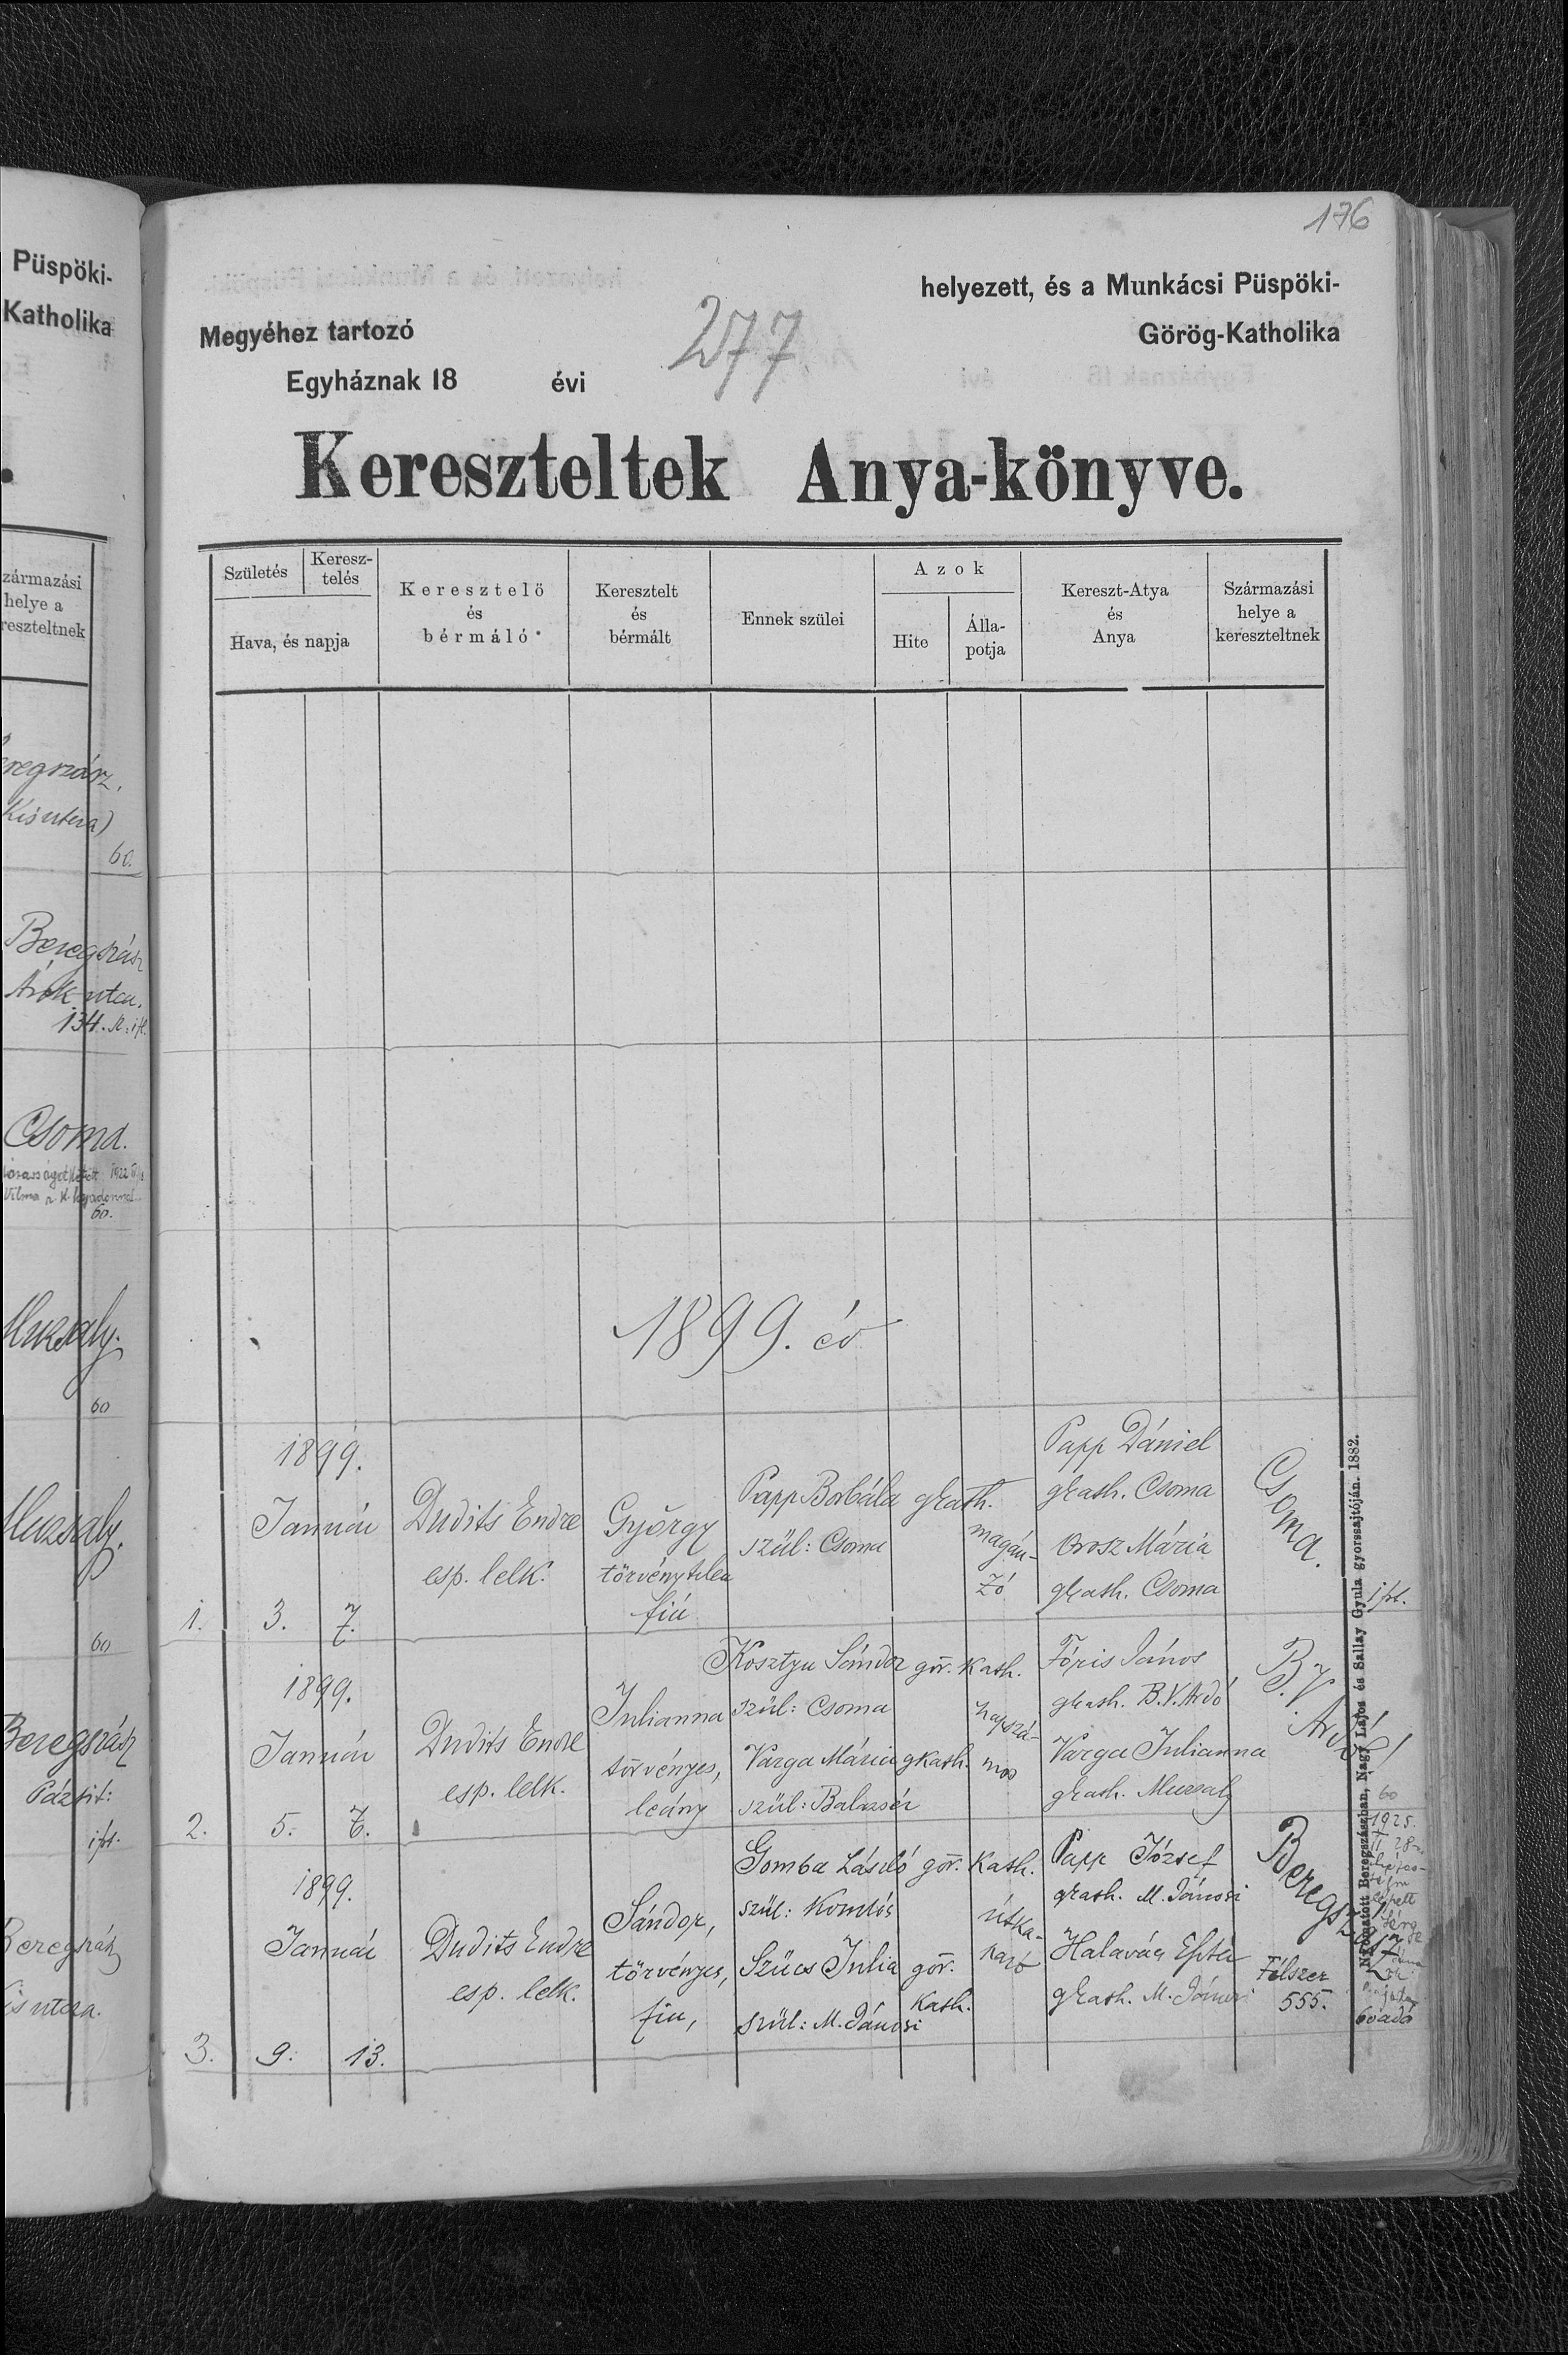 Püspöki-
Katholika
zármazási
helye a
reszteltnek
Kis utca)
60.
Beregszász
Árok utca.
134.
Csoma.
60.
Muzsaly.
60
Muzsaly.
60
Beregszász
Pázsit:
Beregszász
176
helyezett, és a Munkácsi Püspöki-
Megyéhez tartozó
277
Görög-Katholika
Egyháznak 18 évi
Kereszteltek Anya-könyve.
Születés
Keresz-
telés
Hava, és napja
Keresztelő
és
bérmáló
Keresztelt
és
bérmált
Ennek szülei
Azok
Hite
Álla-
potja
Kereszt-Atya
és
Anya
Származási
helye a
kereszteltnek
1899. év
1899.
Január
1. 3. 7.
Dudits Endre
esp. lelk.
György
törvénytelen
fiú
Papp Borbála gkath.
szül: Csoma
magán-
zó
Papp Dániel
gkath. Csoma
Orosz Mária
gkath. Csoma
Csoma.
1899.
Január
2. 5. 7.
Dudits Endre
esp. lelk.
Julianna
törvényes,
leány
Kosztyu Sándor gör. kath.
szül: Csoma
Varga Mária gkath.
szül: Balazsér
napszá-
mos
Fóris János
gkath. B.V. Ardó
Varga Julianna
gkath. Muzsaly
B.V.
Ardó
60
1899.
Január
3. 9. 13.
Dudits Endre
esp. lelk.
Sándor,
törvényes,
fiu,
Gomba László gör. kath.
szül: Komlós
Szücs Julia gör.
kath.
szül: M. Jánosi
útka-
paró
Papp József
gkath. M. Jánosi
Halavács Eszter
gkath. M. Jánosi
Félszer
555.
1925.
Nyomatott Beregszászban, Nagy Lajos és Sallay Gyula gyorssajtóján. 1882.